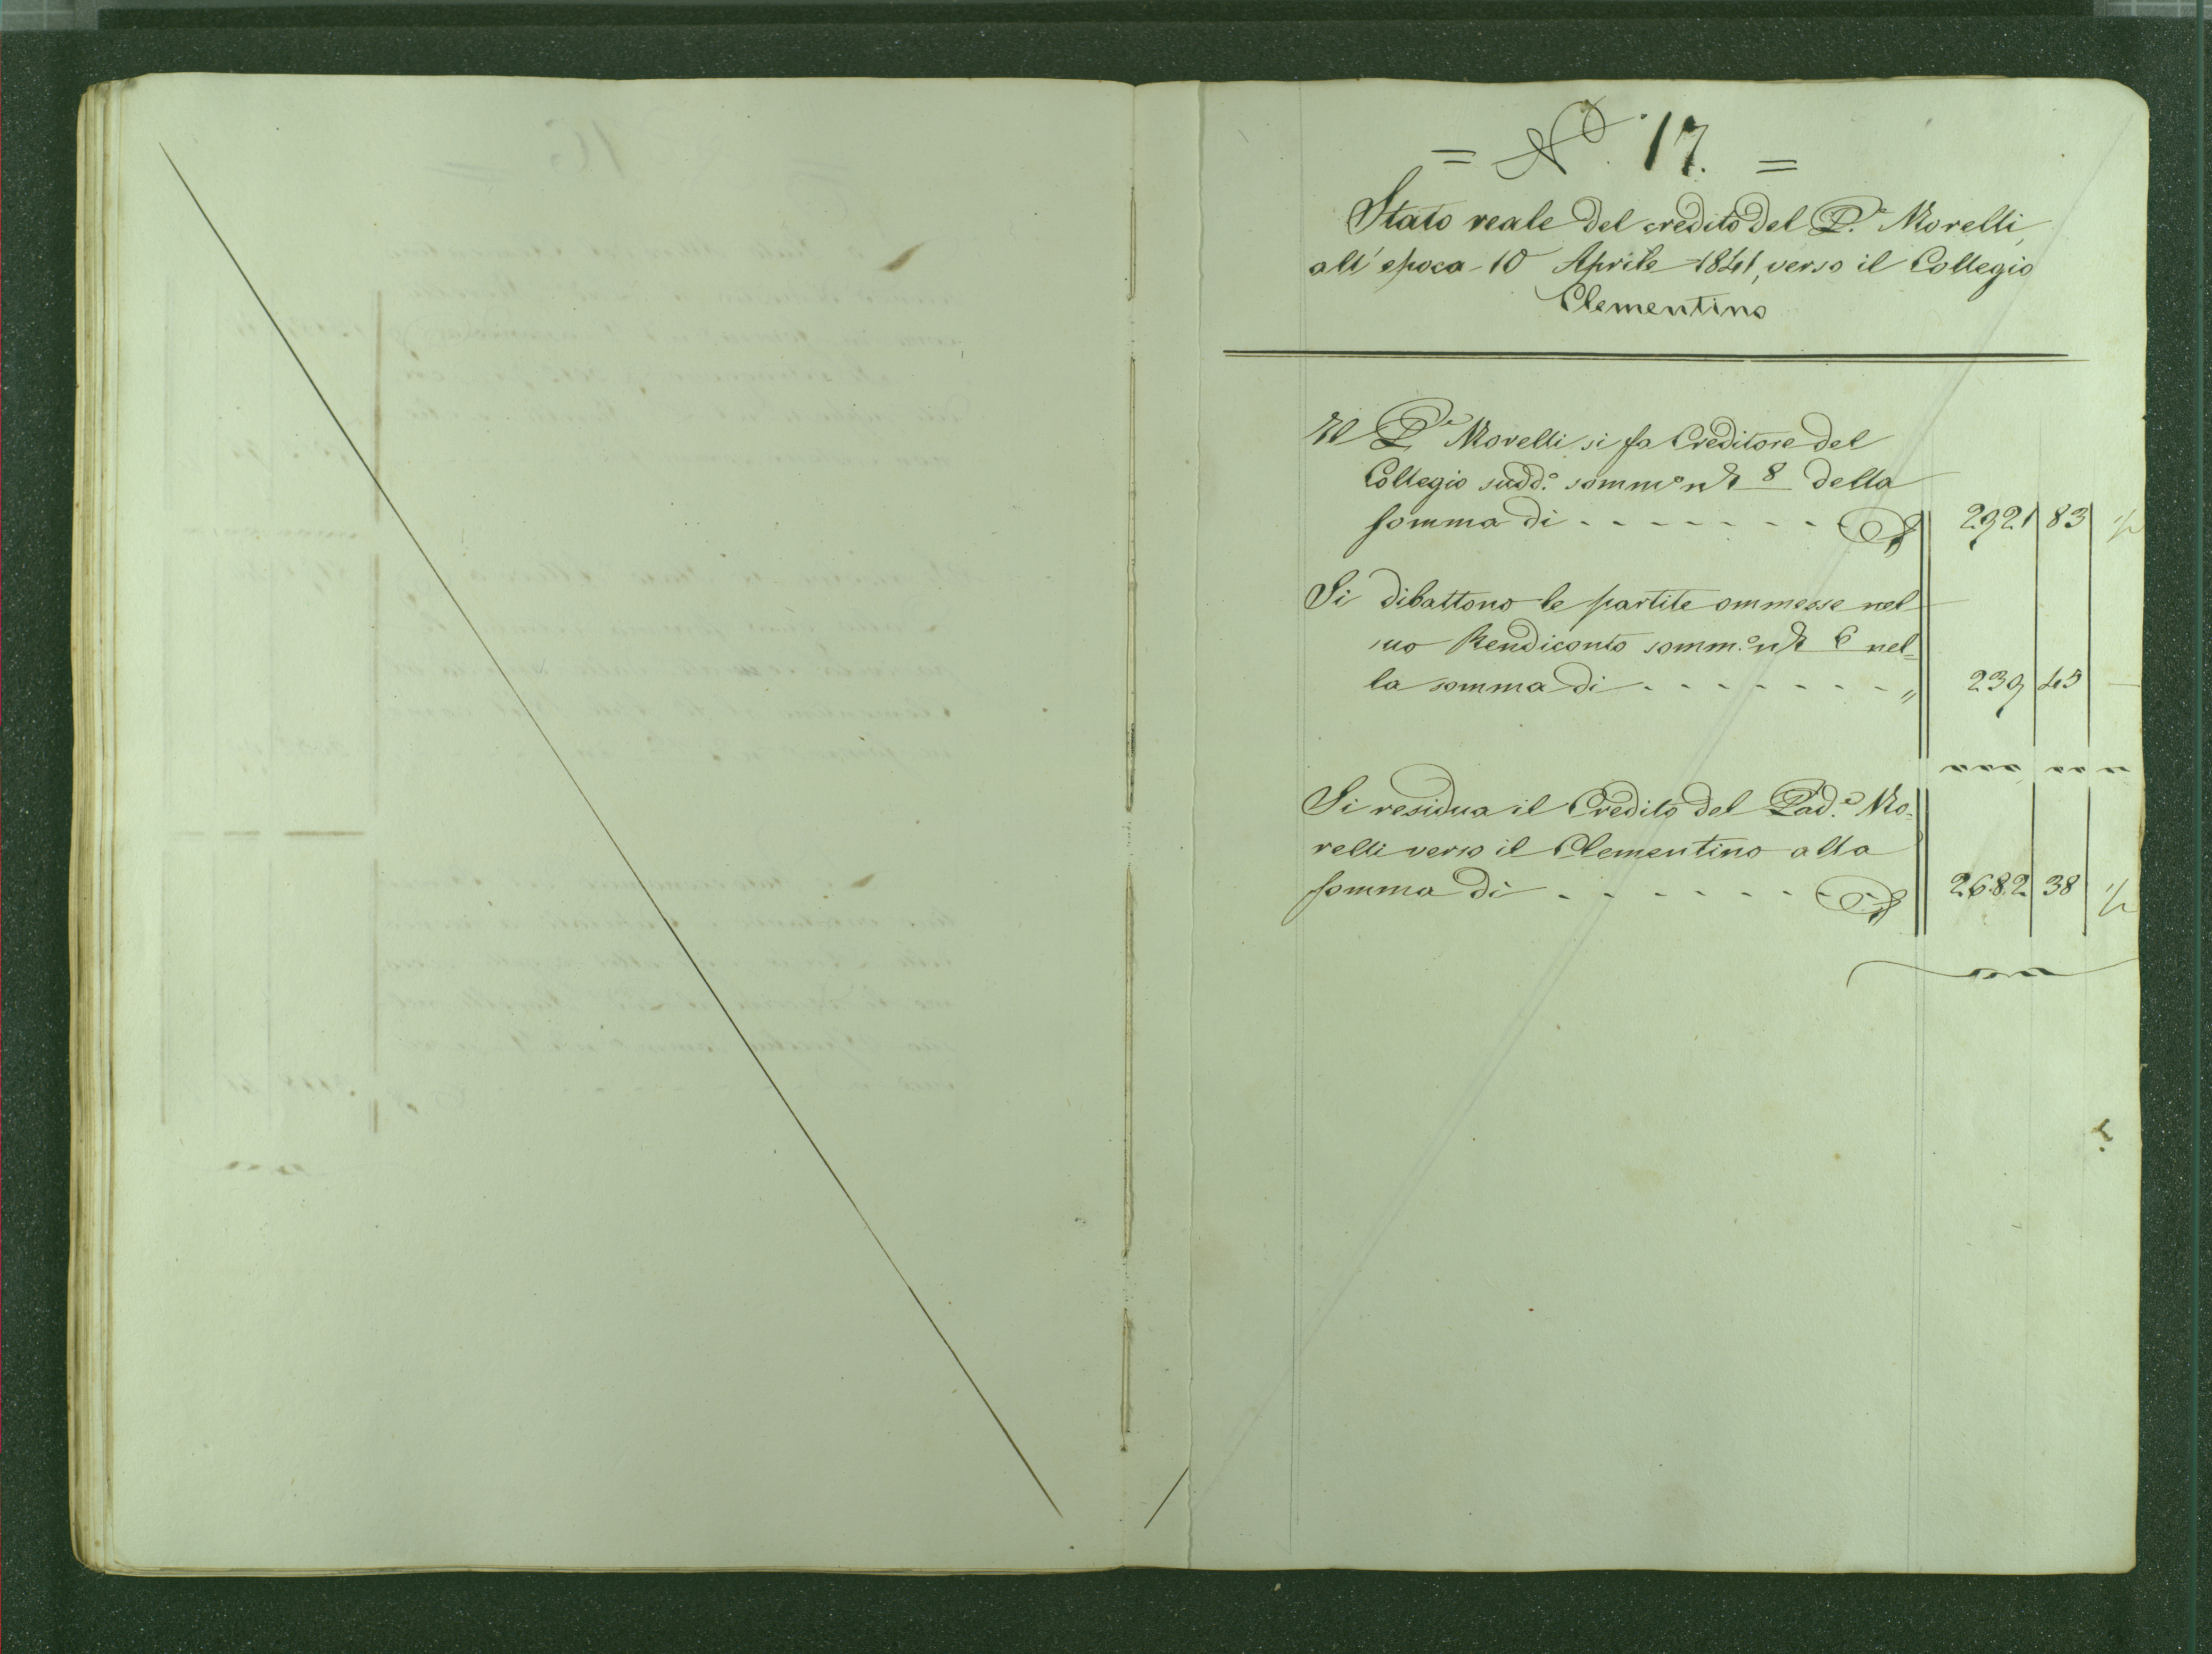 = N.º 17. =
Stato reale del credito del P.e Morelli,
all'epoca 10 Aprile 1841, verso il Collegio
Clementino
Il P.e Morelli si fa Creditore del
Collegio sudd.º somm.º nº 8 della
somma di - - - - - - - - 2921 83 ½
Si dibattono le partite ommesse nel
suo Rendiconto somm.º nº 6 nel=
la somma di - - - - - - - - " 239 45 —
Si residua il Credito del Pad.e Mo=
relli verso il Clementino alla
somma di - - - - - - - - 2682 38 ½